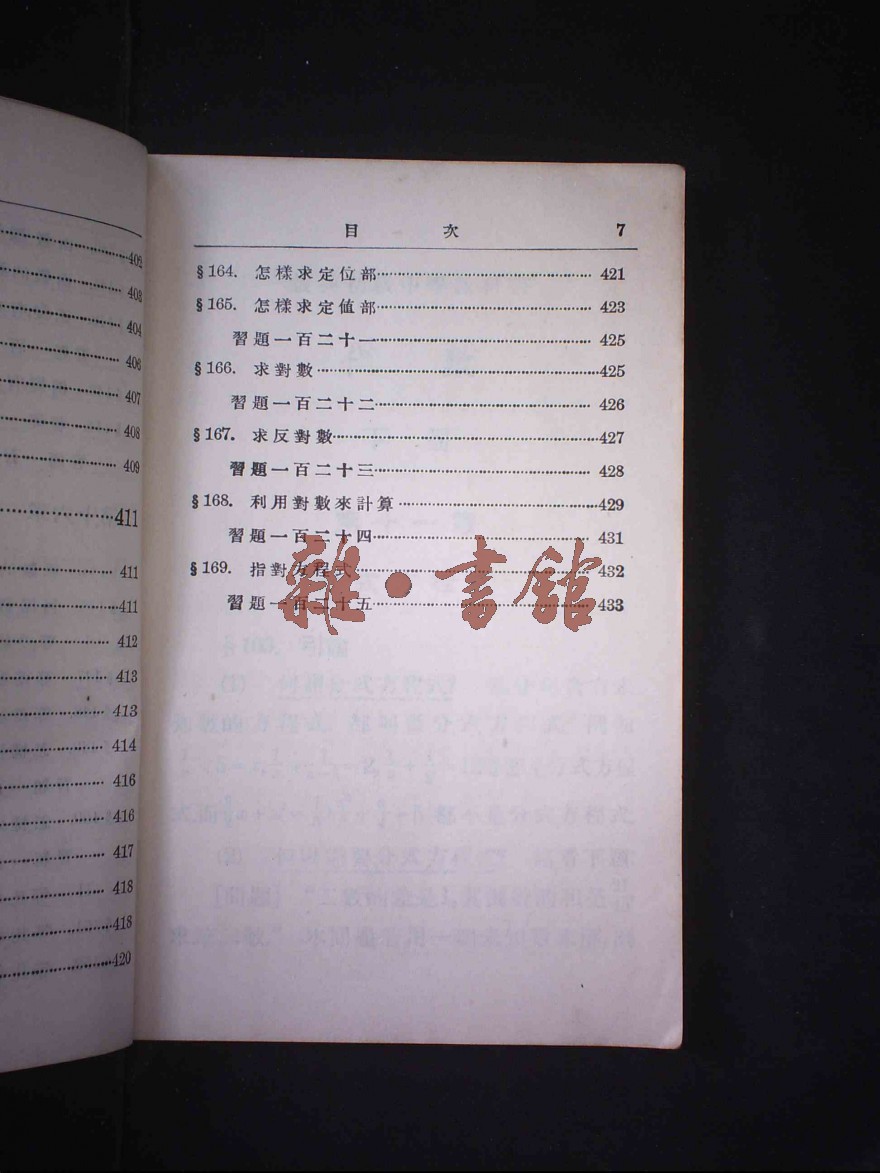 402
403
404
406
407
408
409
411
411
411
412
413
413
414
416
416
417
418
418
420
目次 7
§164. 怎樣求定位部 421
§165. 怎樣求定値部 423
習題一百二十一 425
§166. 求對數 425
習題一百二十二 426
§167. 求反對數 427
習題一百二十三 428
§168. 利用對數來計算 429
習題一百二十四 431
§169. 指對方程式 432
習題一百二十五 433
雜·書館